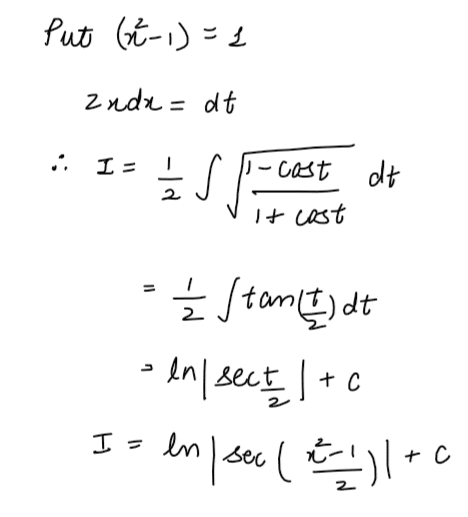 Put (x²-1) = 1
2xdx = dt
∴ I = 1/2 ∫ √((1-cost)/(1+cost)) dt
= 1/2 ∫tan(t/2)dt
= ln|sec t/2| + c
I = ln|sec((x²-1)/2)| + c